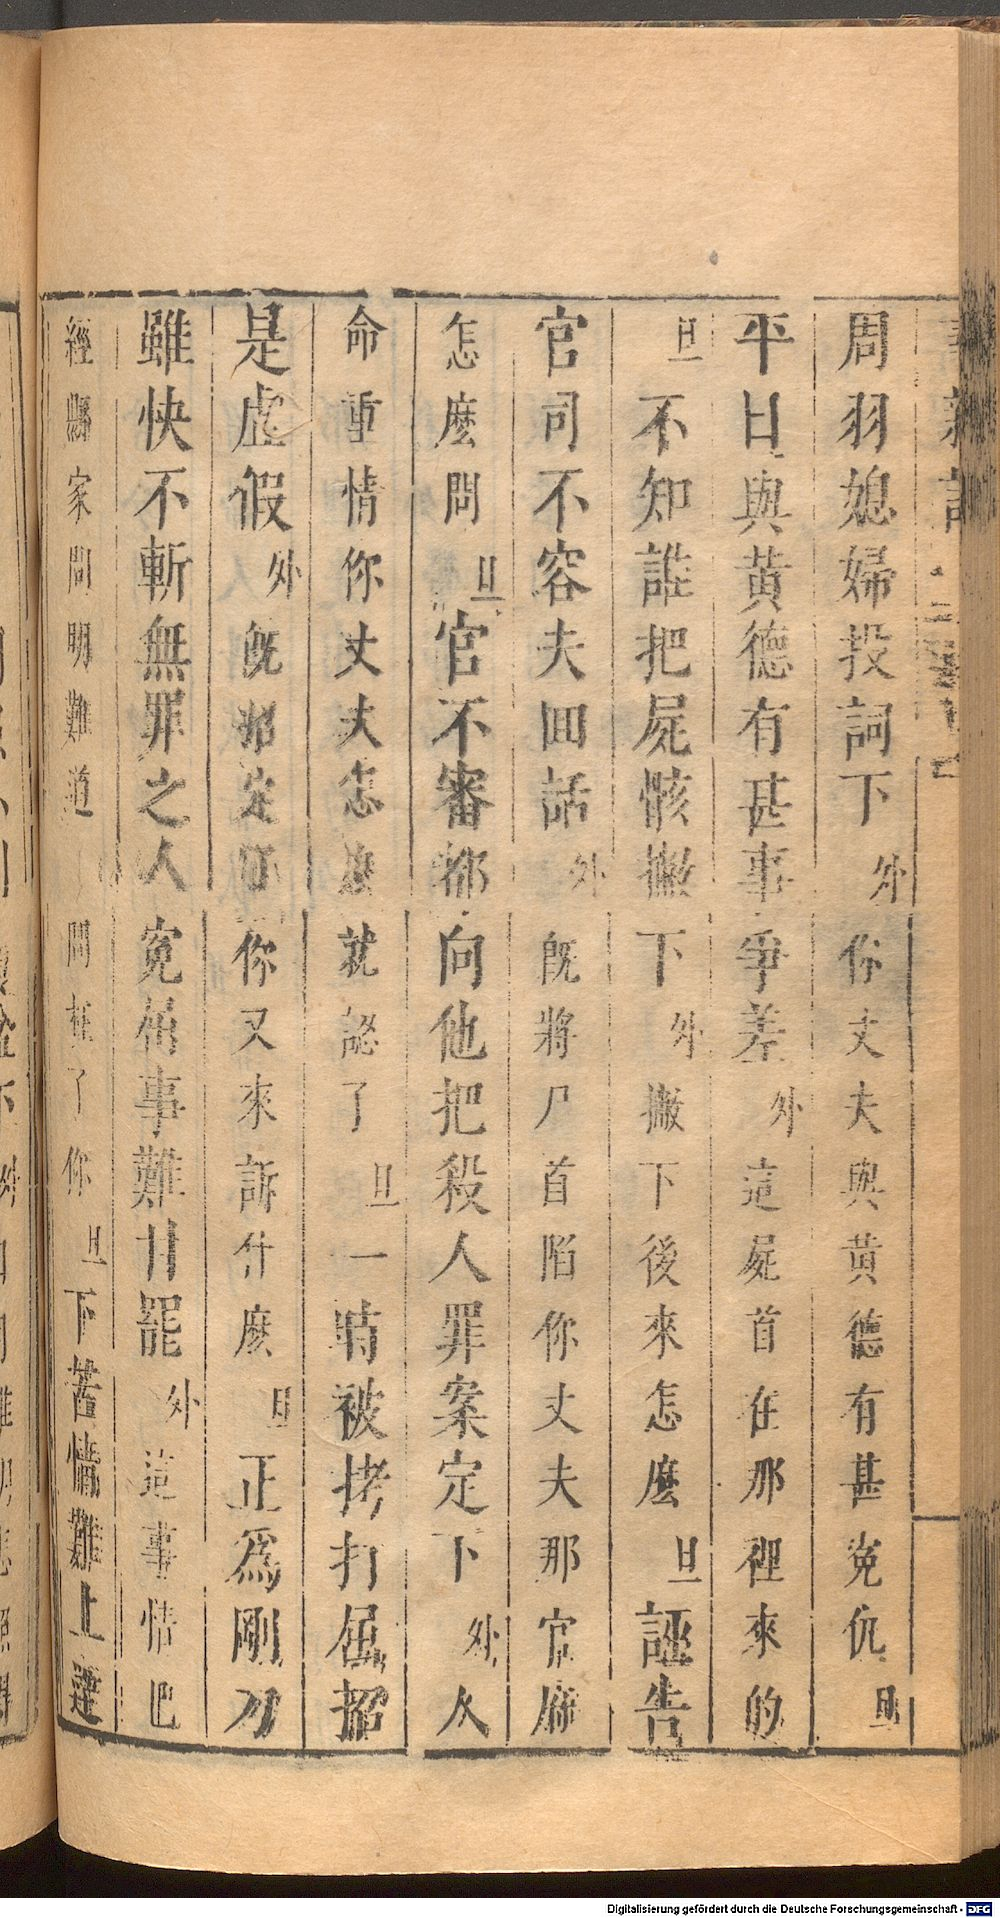 周羽媳婦投詞下外你丈夫與黃德有甚寃仇旦
平日與黃德有甚事爭差外這屍首在那裡來的
旦不知誰把屍骸撇下外撇下後來怎麽旦誣告
官司不容夫回話外旣將尸首陷你丈夫那官府
怎麽問旦官不審都向他把殺人罪案定下外人
命重情你丈夫怎麽就認了旦一時被拷打屈招
是虛假外旣招定了你又來訴什麽旦正爲剛刀
雖快不斬無罪之人寃屈事難甘罷外這事情巴
經縣家問明難道問枉了你旦下苦情難上達
Digitalisierung gefördert durch die Deutsche Forschungsgemeinschaft - DFG